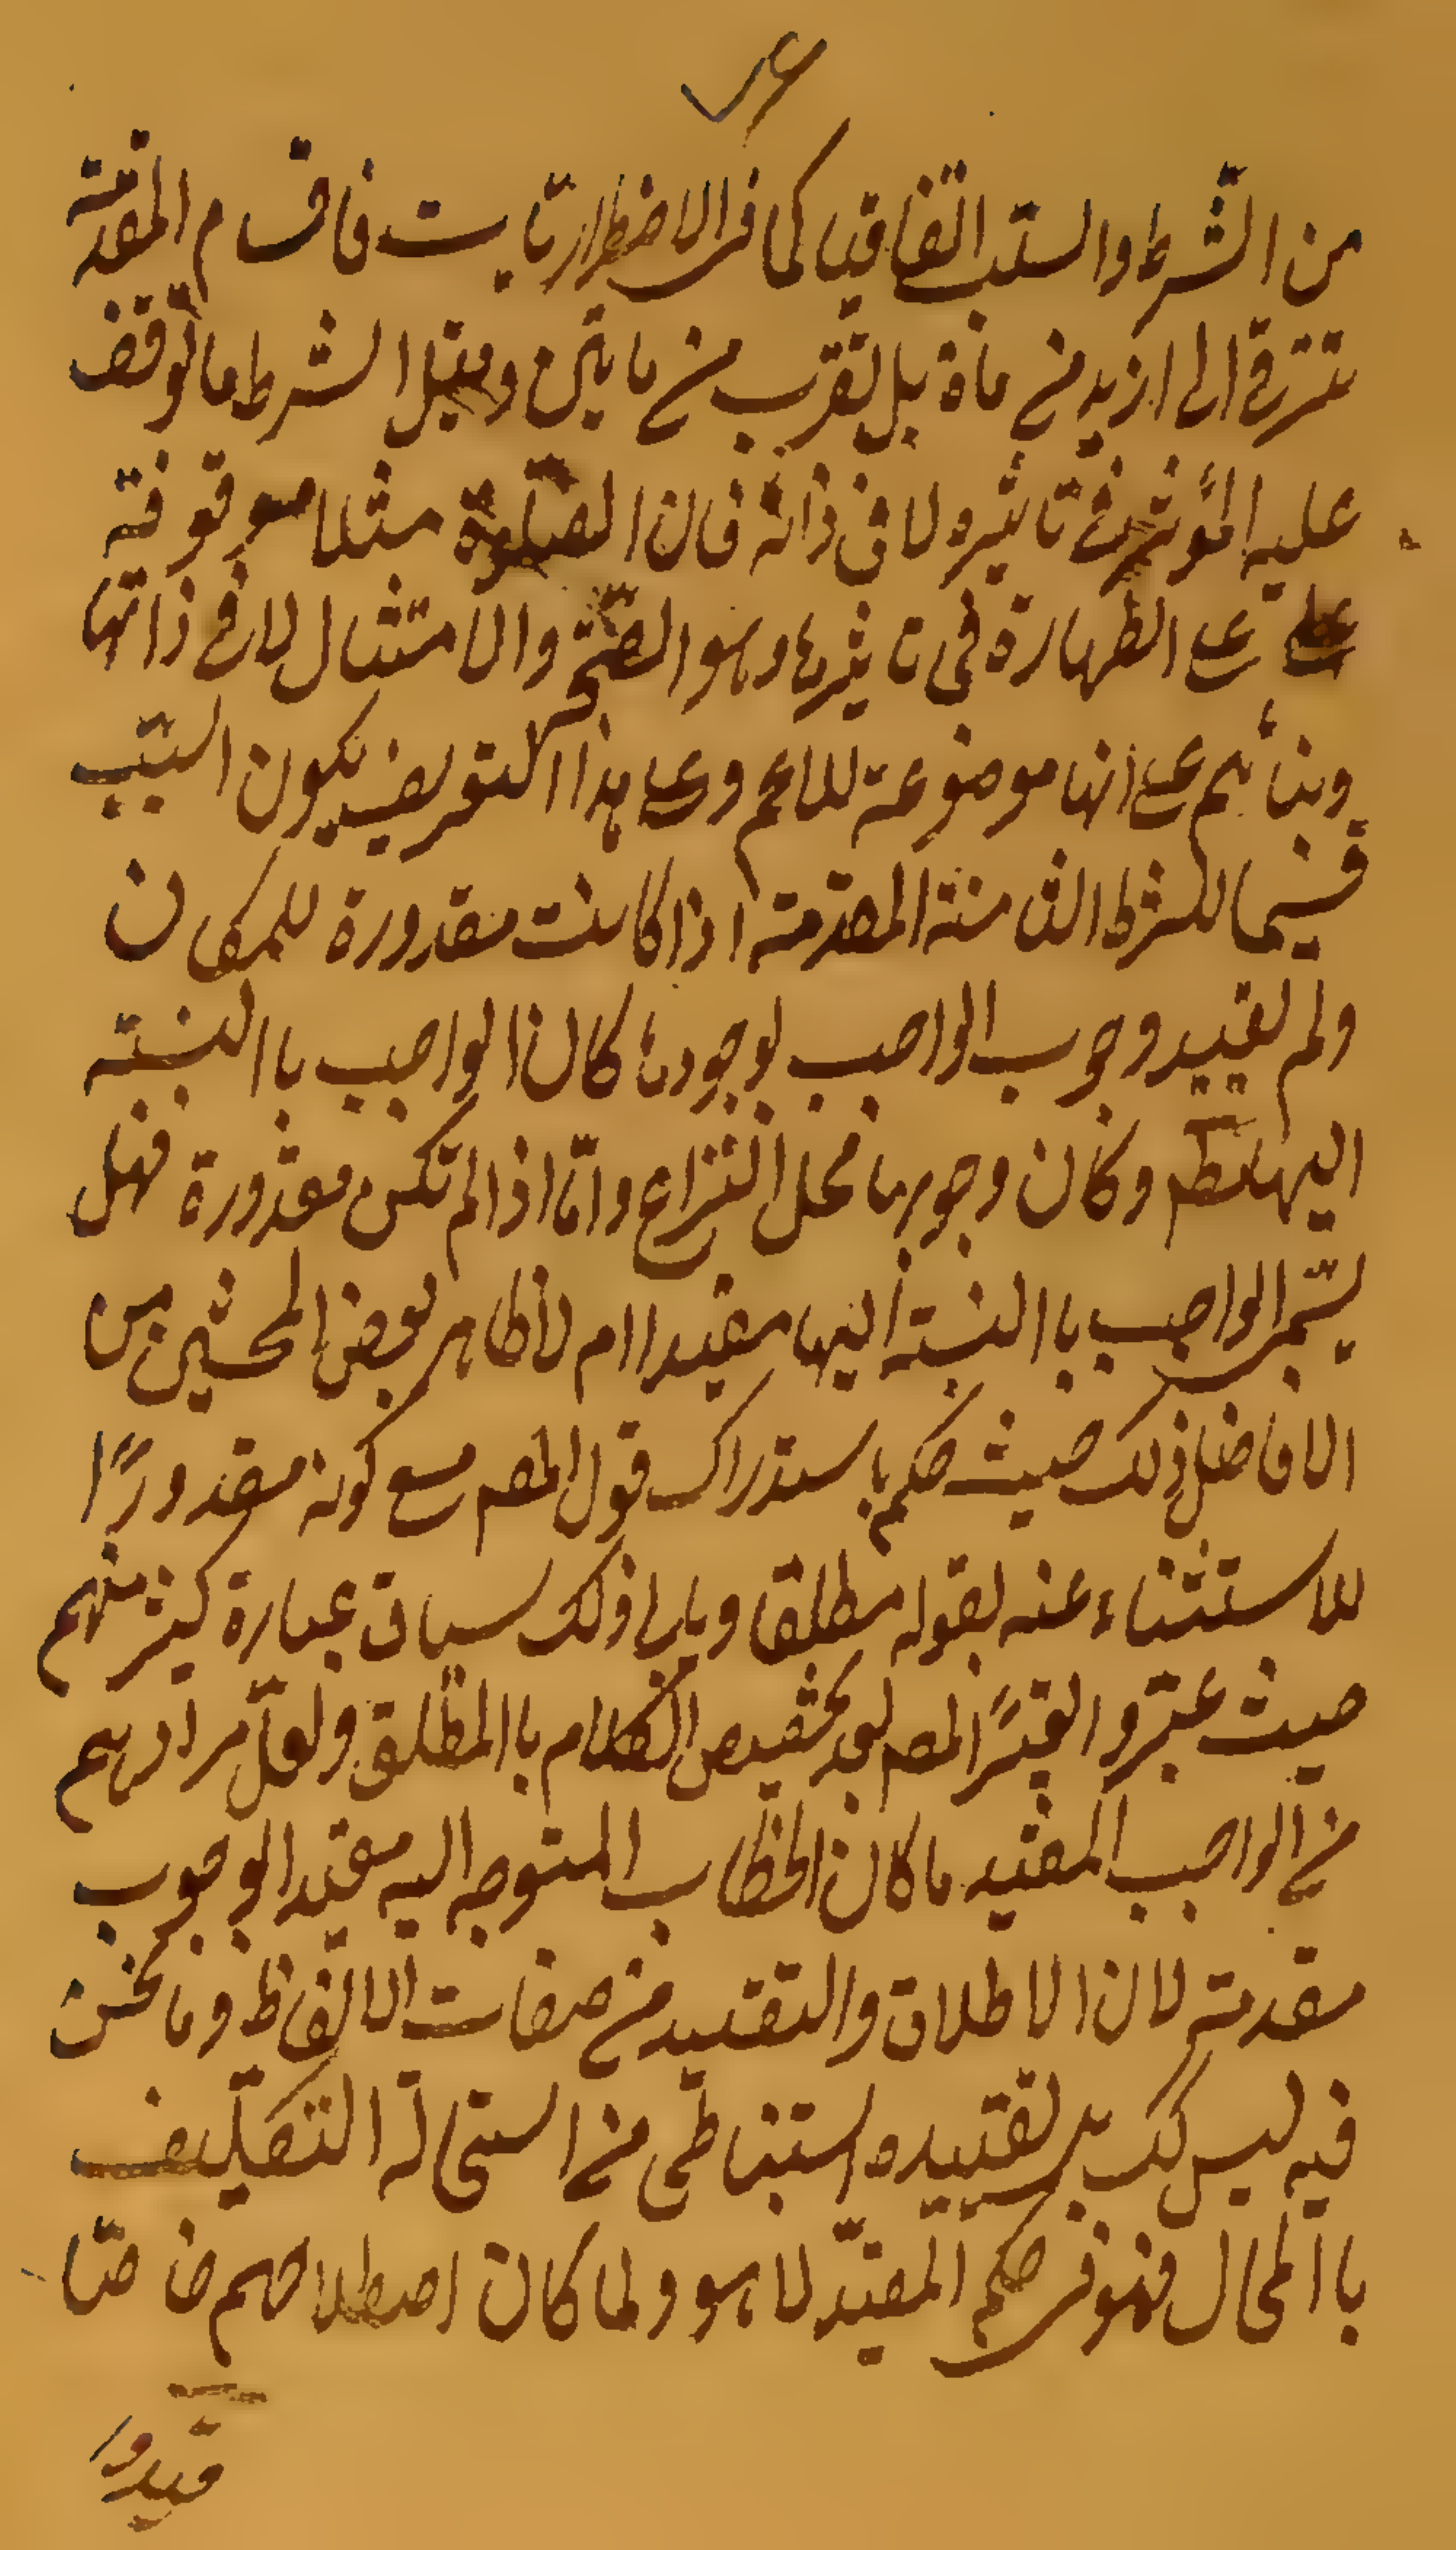 من الشّرط والسّبب اتّفاقيا كما فى الاضطراريّات فاقسام المقدّمة
تترقى الى ازيد من مأة بل تقرب من مأتين وقيل الشرط ما توقف
عليه المؤثر فى تاثيره لا فى ذاته فان الصّلوة مثلا موقوفة
على الطهارة فى تاثيرها وهو الصّحّة والامتثال لا فى ذاتها
وبنائهم على انها موضوعة للاعم وعلى هذا التعريف يكون السّبب
قسيما للشرط الثامنة المقدّمة اذا كانت مقدورة للمكلف
ولم تقييد وجوب الواجب بوجودها كان الواجب باالنسبة
اليها مط وكان وجوبها محل النزاع وامّا اذا لم تكن مقدورة فهل
يسمّى الواجب باالنسبة اليها مقيدا ام لا ظاهر بعض المحشين من
الافاضل ذلك حيث حكم باستدراك قول المصم مع كونه مقدورًا
للاستثناء عنه بقوله مطلقا ويابى ذلك سياق عبارة كثير منهم
حيث عبّروا المصم بعد تخصيص الكلام باالمطلق ولعلّ مرادهم
من الواجب المقيد ما كان الخطاب المتوجه اليه مقيدا بوجوب
مقدمته لان الاطلاق والتقييد من صفات الالفاظ وما نحن
فيه ليس كك بل تقييده استنباطى من استحالة التكليف
باالمحال فهو فى حكم المقيّد لا هو ولما كان اصطلاحهم خاصّا